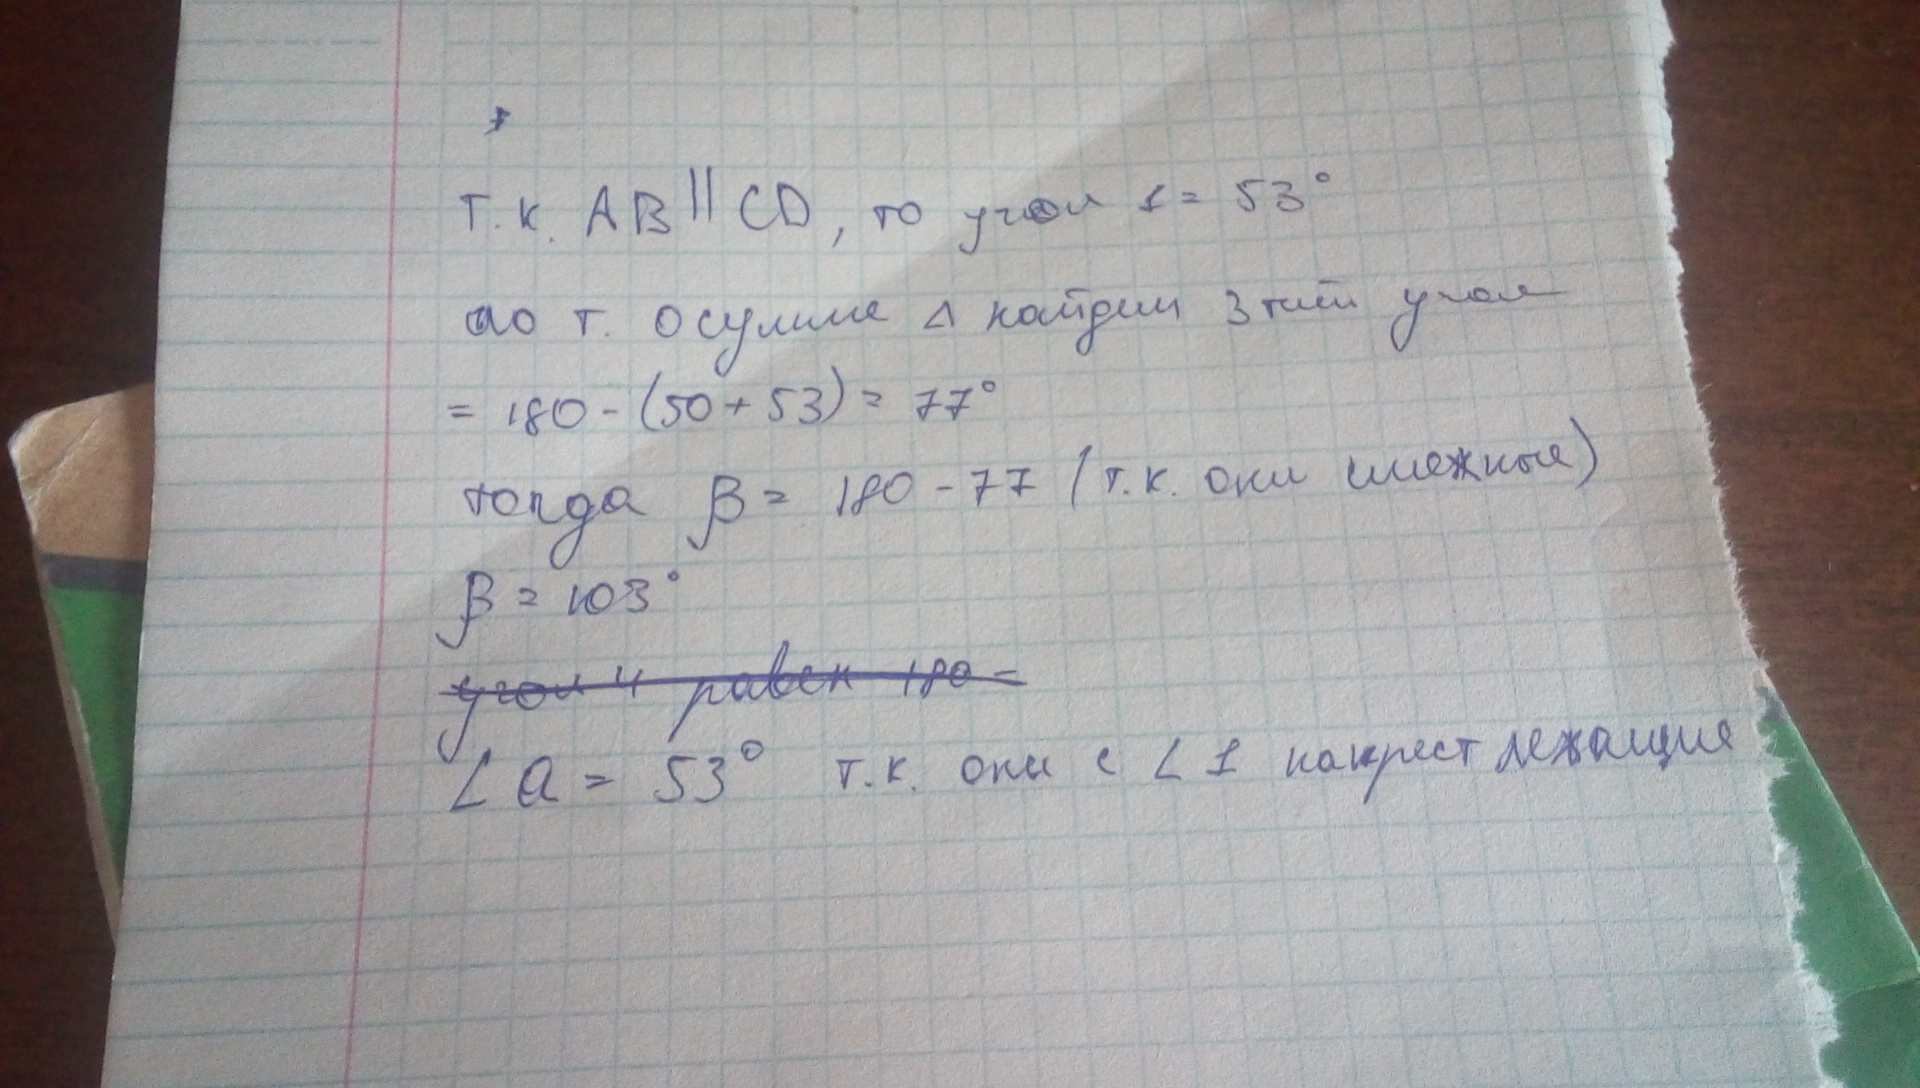 т.к. AB || CD, то угол 1 = 53°
по т. о сумме Δ найдем 3 тий угол
= 180 - (50 + 53) = 77°
тогда β = 180 - 77 (т.к. они смежные)
β = 103°
угол 4 равен 180 -
∠ a = 53° т.к. они с ∠ 1 накрест лежащие